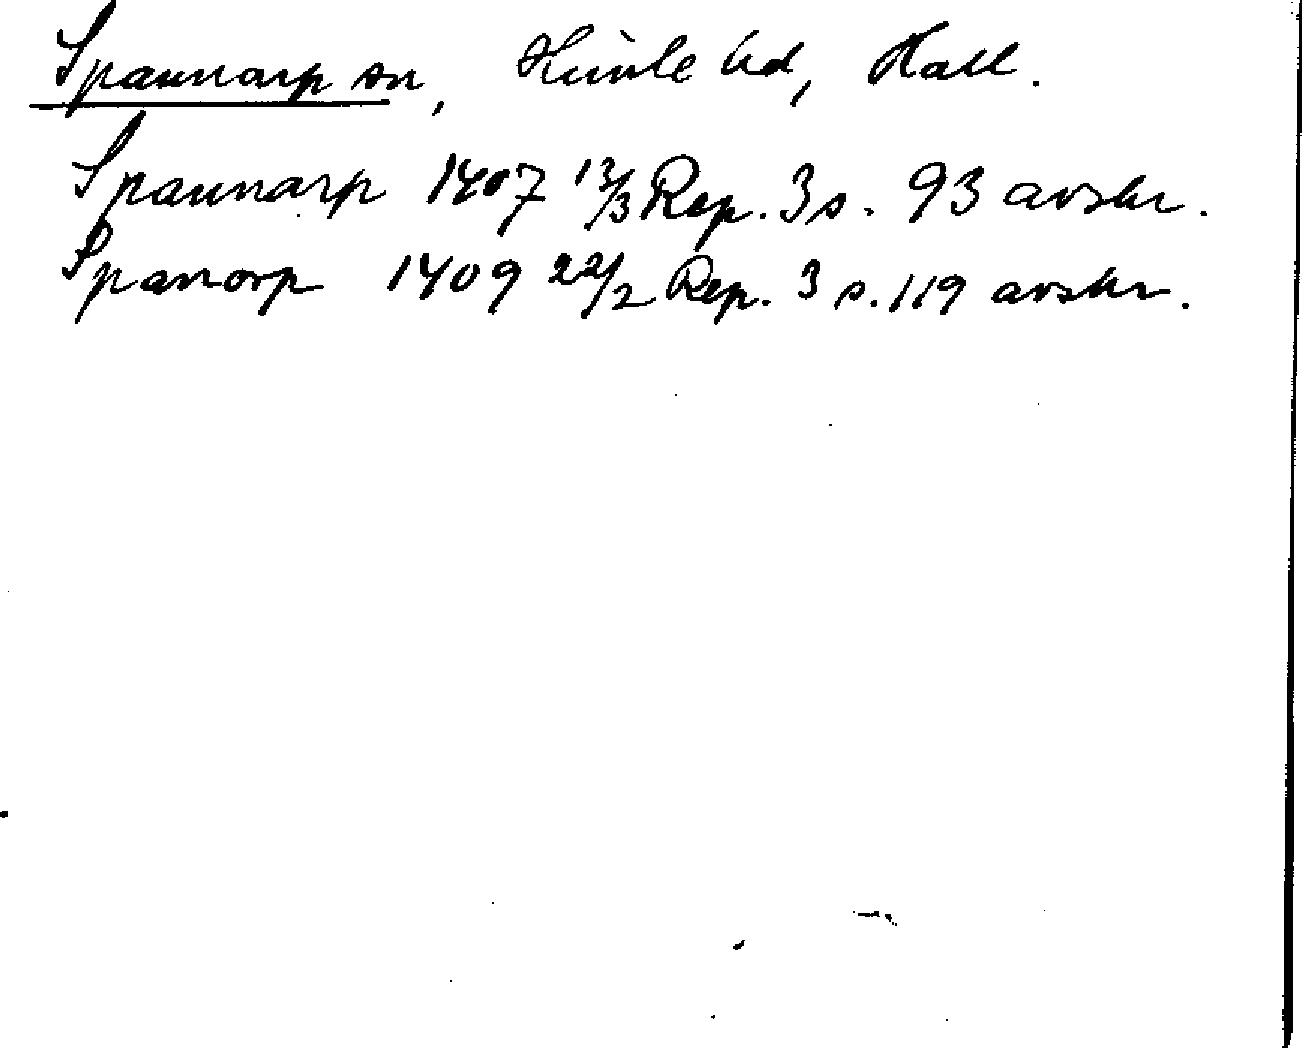 Spannarp sn, Himle hd, Hall.
Spannarp 1407 12/3 Rep. 3 s. 93 avskr.
Spanorp 1409 22/2 Rep. 3 s. 119 avskr.